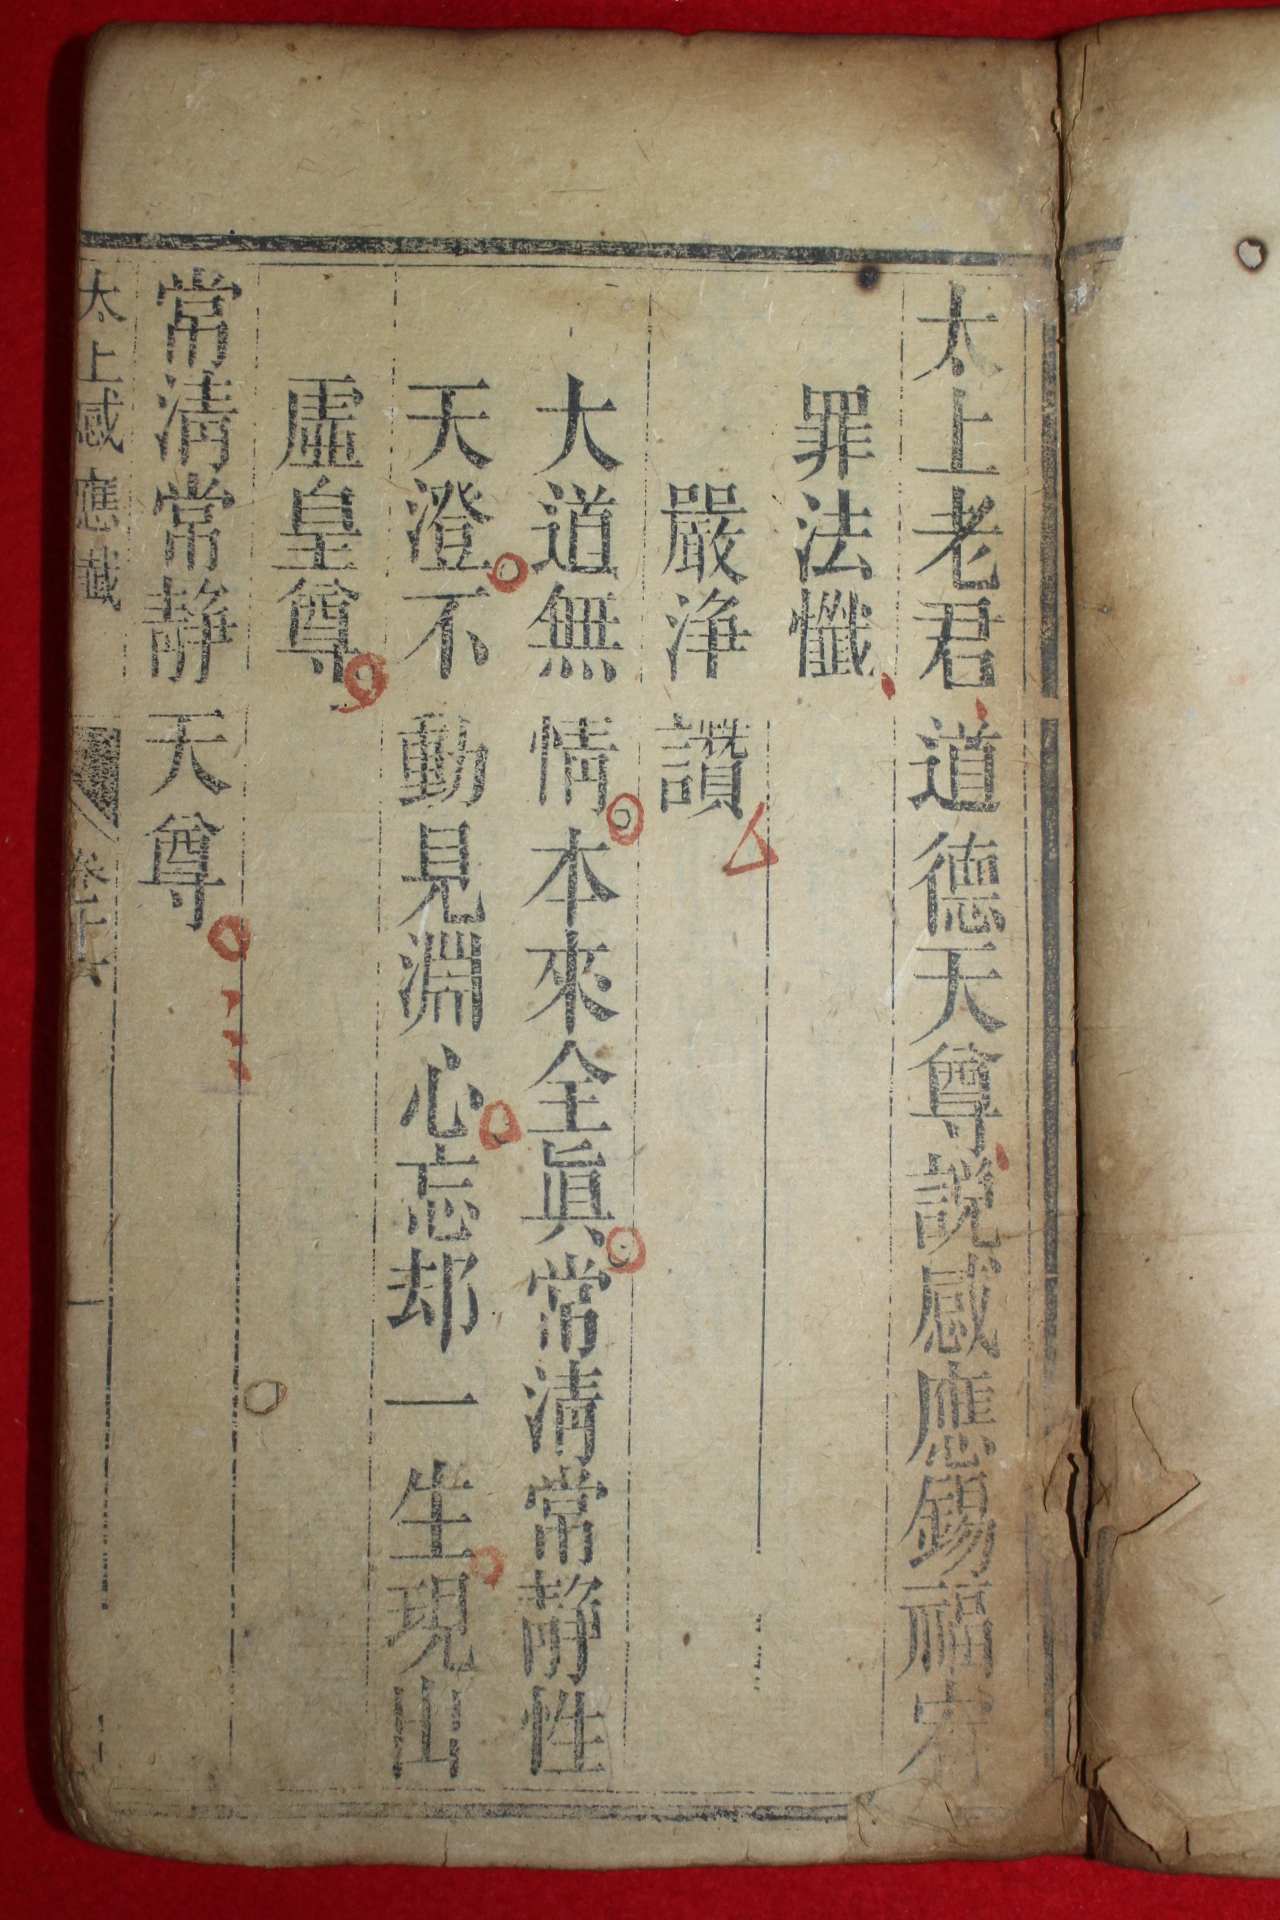 太上老君道德天尊說感應錫福宥
罪法懺
嚴淨讚
大道無情本來全眞常清常靜性
天澄不動見淵心忘却一生現出
虛皇尊
常清常靜天尊
太上感應懺